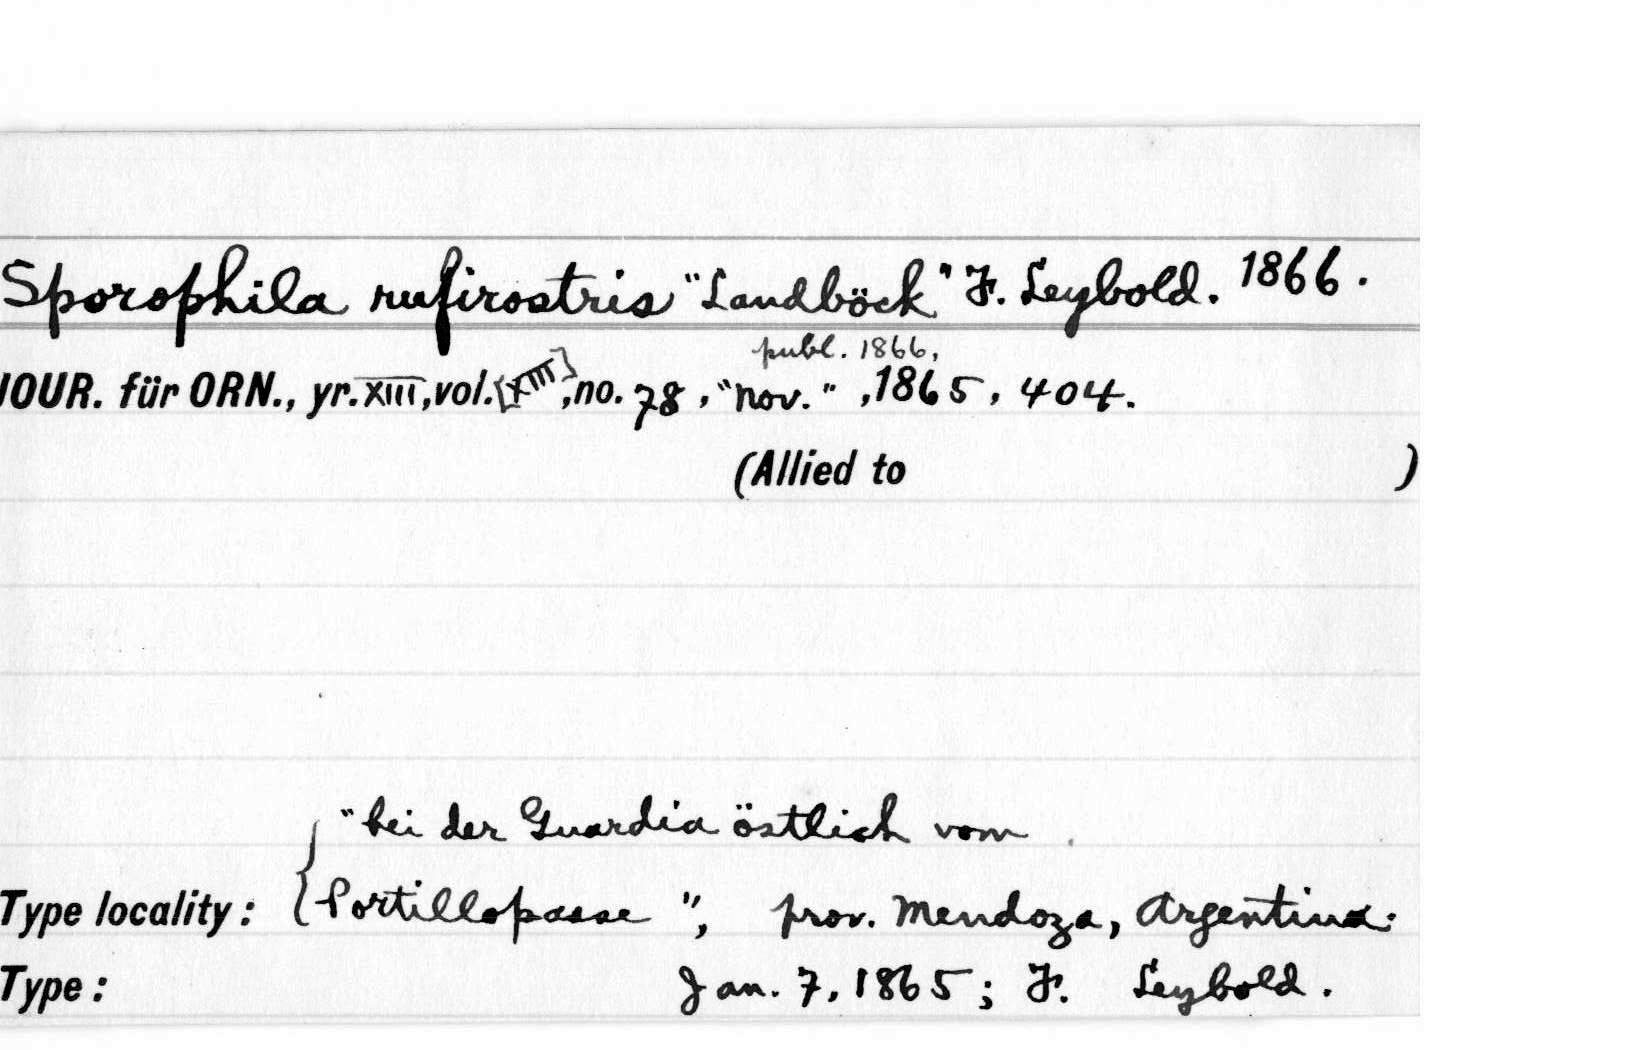 Sporophila rufirostris "Landböck" F. Leybold. 1866.
publ. 1866,
JOUR. für ORN., yr. XIII, vol. [XIII], no. 78, "Nov.", 1865, 404.
(Allied to )
"bei der Guardia östlich vom
Type locality: Portillopasse", prov. Mendoza, Argentina.
Type: Jan. 7, 1865; F. Leybold.